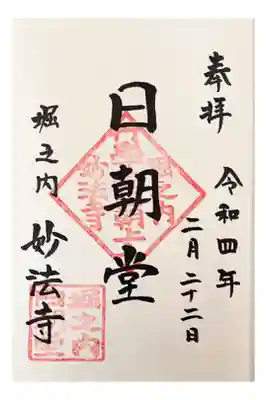 奉拝
令和四年
二月二十二日
日朝堂
堀之内
妙法寺